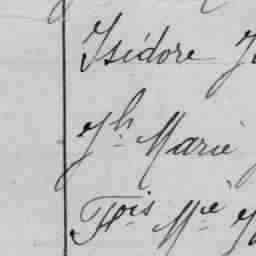 Isidore
Jh Marie
Fois Mie